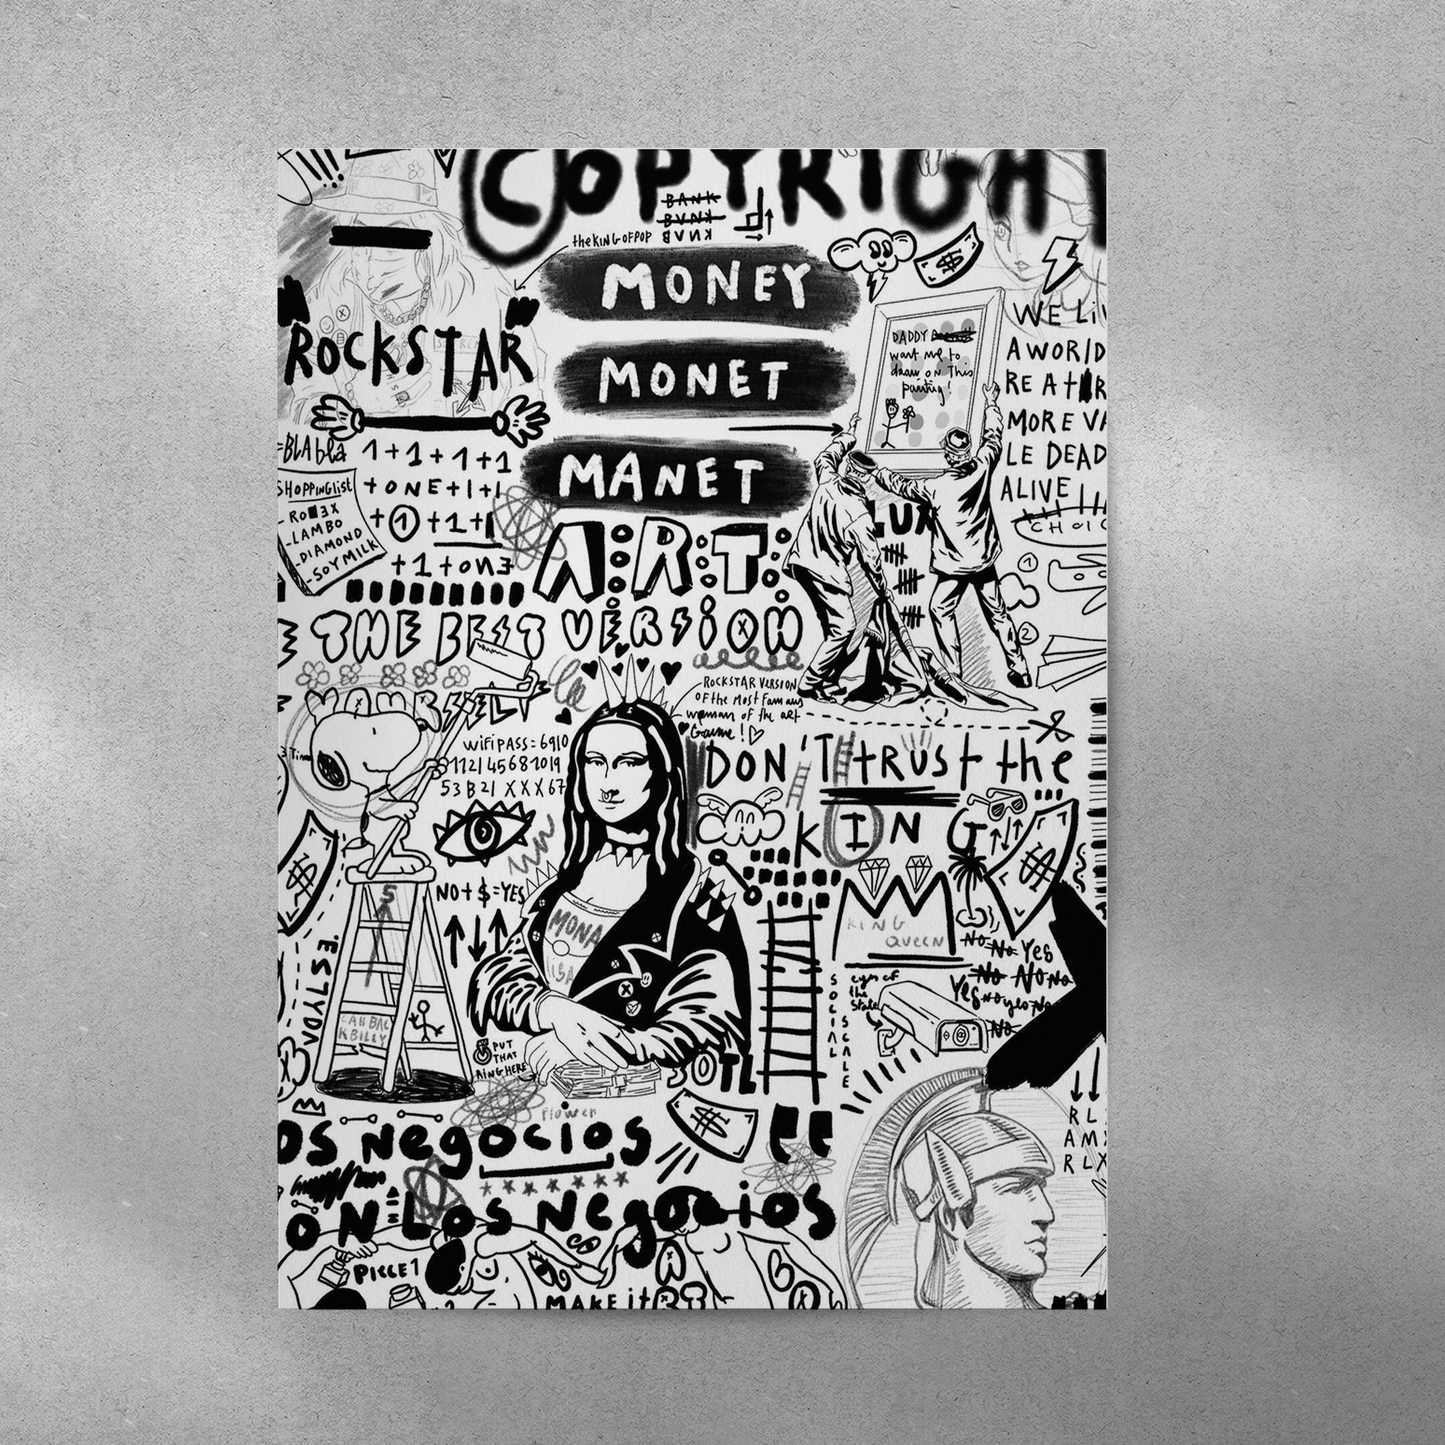 COPYRIGH
BANK
BANK
BANK
theKINGOFPOP
MONEY
ROCKSTAR
MONET
MANET
DADDY
want me to
draw on This
painting!
WE Li
A WORLD
MORE VA
LE DEAD
ALIVE
CHOIC
=BLAblà
1+1+1+1
+ONE+1+1
+1+1+1
+1+one
SHOPPINGlist
-LAMBO
-DIAMOND
-SOYMILK
LUX
1
2
A:R:T:
THE BEST VERSION
YOURSELF
ROCKSTAR VERSION
OF the MOST Famous
woman of the art
Game!
WiFi PASS=6910
1121 45681019
53B21 XXX67
DON'T trust the
KING
NO+$=YES
MONA
LISA
KING
QUEEN
NO NO Yes
NO NO NO
Yes NO yes NO
NO
eyes of
the
State
SOCIAL
SCALE
PUT
THAT
RING HERE
Flower
OS Negocios
SON Los Negocios
RL
AMX
RLX
PIECE 1
MAKE it ART